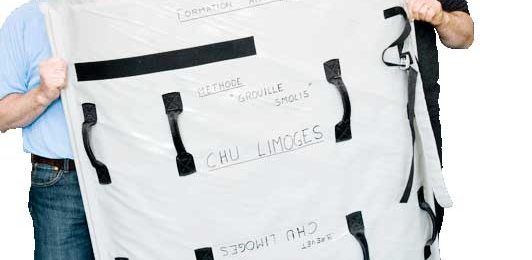 FORMATION
METHODE
"GROUILLE
SMOLIS"
CHU LIMOGES
CHU LIMOGES
BREVET